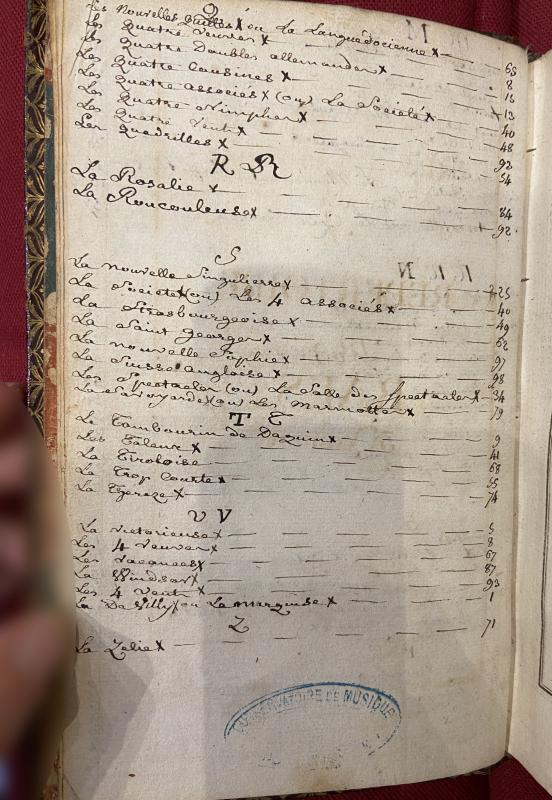 Q
Les Nouvelles Quilles X ou La Languedocienne X — 65
Les Quatre Veuves X — 8
Les Quatre Doubles allemandes X — 16
Les Quatre Cousines X — 13
Les Quatre associés X (ou) La Société X — 40
Les Quatre Nimphes X — 48
Les Quatre Vents X — 93
Les Quadrilles X — 54
R R
La Rosalie X — 84
La Roucouleuse X — 92
S
La nouvelle Singulierre X — 25
La Société (ou) Les 4 associés X — 40
La Strasbourgeoise X — 49
La Saint Georges X — 62
La nouvelle Sophie X — 97
La Suisse Angloise X — 98
Les Spectacles (ou) La Salle des Spectacles X — 34
La Savoyarde (ou) Les Marmottes X — 79
T T
Le Tambourin de Daquin X — 9
Les Talens X — 41
La Tiroloise — 68
La Trop Courte X — 55
La Thereze X — 74
U V
La victorieuse X — 5
Les 4 Veuves X — 8
Les Vacances X — 67
La Windsor X — 87
Les 4 Vents X — 93
La De Villy ou La Marquise X — 1
Z
La Zelie X — 71
CONSERVATOIRE DE MUSIQUE